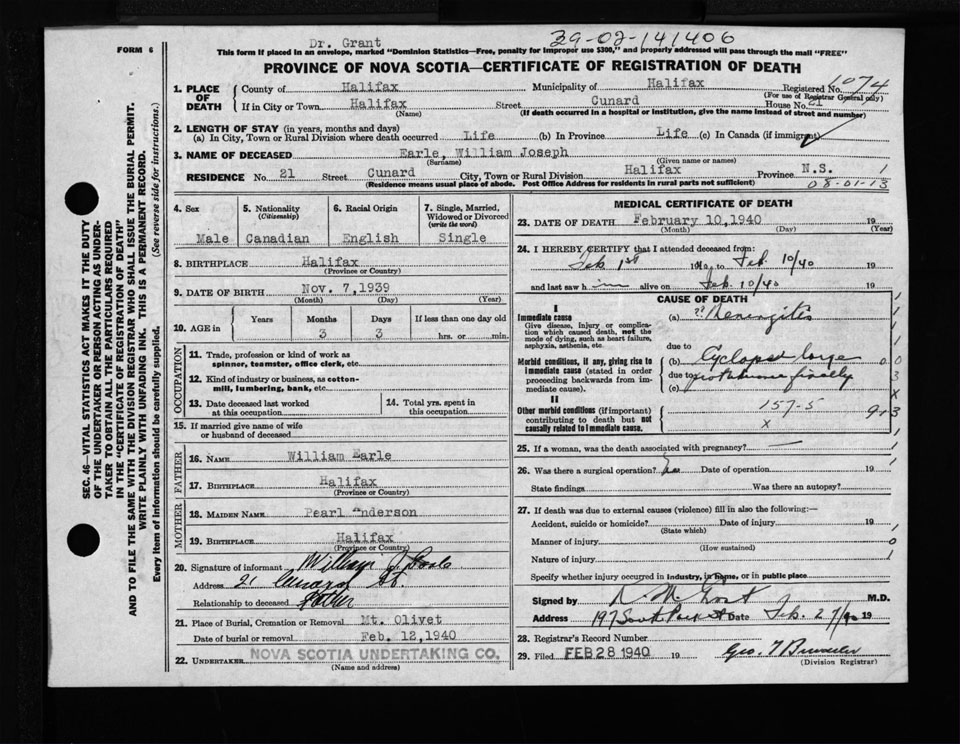 Dr. Grant
39-02-141406
FORM 6
This form if placed in an envelope, marked "Dominion Statistics—Free, penalty for improper use $300," and properly addressed will pass through the mail "FREE"
PROVINCE OF NOVA SCOTIA—CERTIFICATE OF REGISTRATION OF DEATH
1. PLACE OF DEATH
County of Halifax Municipality of Halifax Registered No. 1074
(For use of Registrar General only)
If in City or Town Halifax Street Cunard House No. 21
(Name) (If death occurred in a hospital or institution, give the name instead of street and number)
2. LENGTH OF STAY (in years, months and days)
(a) In City, Town or Rural Division where death occurred Life (b) In Province Life (c) In Canada (if immigrant)
3. NAME OF DECEASED Earle, William Joseph
(Surname) (Given name or names)
RESIDENCE No. 21 Street Cunard City, Town or Rural Division Halifax Province N.S. 1
(Residence means usual place of abode. Post Office Address for residents in rural parts not sufficient) 08-01-13
4. Sex
Male
5. Nationality
(Citizenship)
Canadian
6. Racial Origin
English
7. Single, Married, Widowed or Divorced
(write the word)
Single
8. BIRTHPLACE Halifax
(Province or Country)
9. DATE OF BIRTH Nov. 7,1939
(Month) (Day) (Year)
10. AGE in
Years Months Days If less than one day old
3 3 hrs. or min.
OCCUPATION
11. Trade, profession or kind of work as
spinner, teamster, office clerk, etc.
12. Kind of industry or business, as cotton-
mill, lumbering, bank, etc.
13. Date deceased last worked
at this occupation
14. Total yrs. spent in
this occupation
15. If married give name of wife
or husband of deceased
FATHER
16. NAME William Earle
17. BIRTHPLACE Halifax
(Province or Country)
MOTHER
18. MAIDEN NAME Pearl Anderson
19. BIRTHPLACE Halifax
(Province or Country)
20. Signature of informant William J. Earle
Address 21 Cunard St.
Relationship to deceased Father
21. Place of Burial, Cremation or Removal Mt. Olivet
Date of burial or removal Feb. 12,1940
22. UNDERTAKER NOVA SCOTIA UNDERTAKING CO.
(Name and address)
MEDICAL CERTIFICATE OF DEATH
23. DATE OF DEATH February 10,1940 19
(Month) (Day) (Year)
24. I HEREBY CERTIFY that I attended deceased from:
Feb 1st 1940 to Feb. 10/40 19
and last saw him alive on Feb. 10/40 19
CAUSE OF DEATH
I
Immediate cause
Give disease, injury or complica-
tion which caused death, not the
mode of dying, such as heart failure,
asphyxia, asthenia, etc.
(a) ?? Meningitis
due to
Morbid conditions, if any, giving rise to
immediate cause (stated in order
proceeding backwards from im-
mediate cause).
(b)
due to
(c)
II
Other morbid conditions (if important)
contributing to death but not
causally related to immediate cause.
157-5
x
25. If a woman, was the death associated with pregnancy?
26. Was there a surgical operation? Date of operation 19
State findings Was there an autopsy?
27. If death was due to external causes (violence) fill in also the following:—
Accident, suicide or homicide? Date of injury 19
(State which)
Manner of injury
(How sustained)
Nature of injury
Specify whether injury occurred in industry, in home, or in public place
Signed by M. Grant M.D.
Address 197 South Park St Date Feb. 27/40 19
28. Registrar's Record Number
29. Filed FEB 28 1940 19
(Division Registrar)
SEC. 46—VITAL STATISTICS ACT MAKES IT THE DUTY
OF THE UNDERTAKER OR PERSON ACTING AS UNDER-
TAKER TO OBTAIN ALL THE PARTICULARS REQUIRED
IN THE "CERTIFICATE OF REGISTRATION OF DEATH"
AND TO FILE THE SAME WITH THE DIVISION REGISTRAR WHO SHALL ISSUE THE BURIAL PERMIT.
WRITE PLAINLY WITH UNFADING INK. THIS IS A PERMANENT RECORD.
Every item of Information should be carefully supplied. (See reverse side for instructions.)